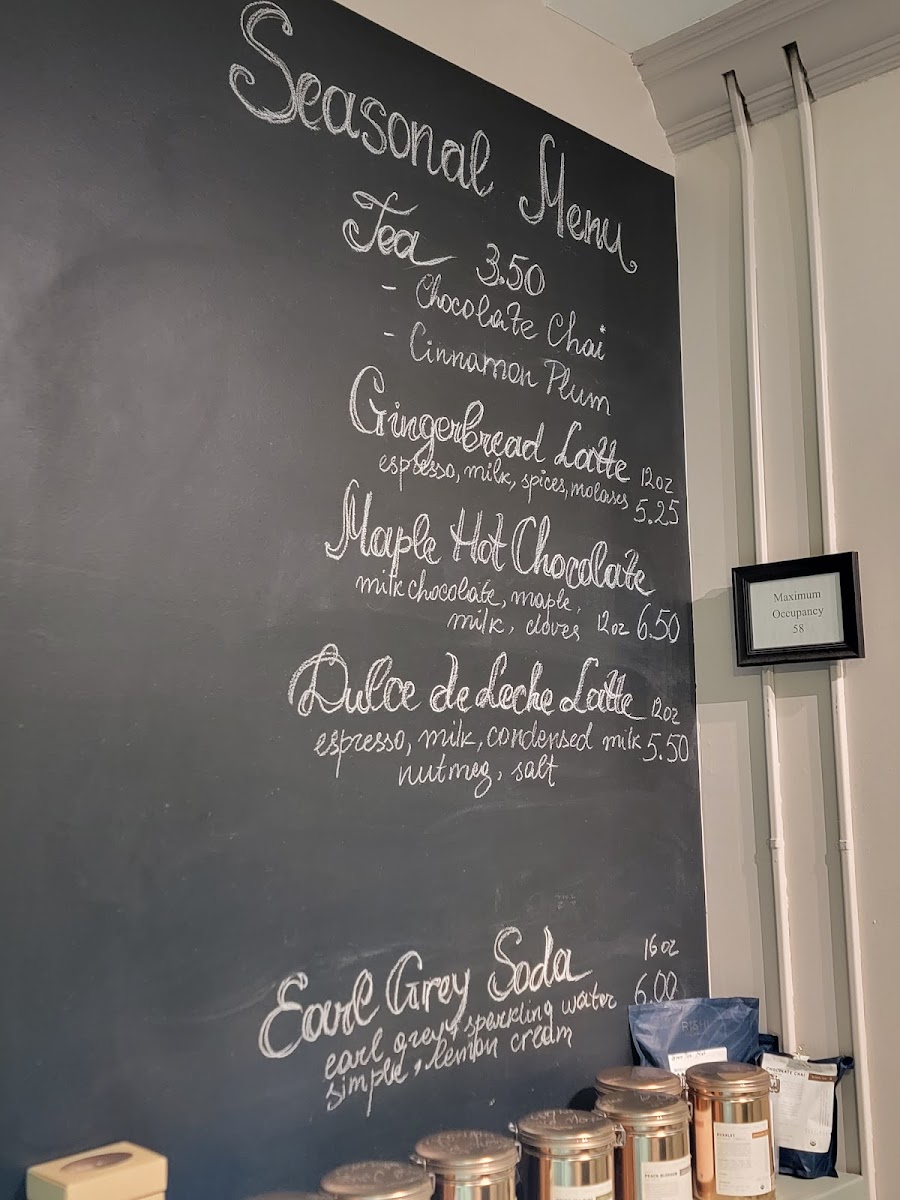 Seasonal Menu
Tea 3.50
- Chocolate Chai
- Cinnamon Plum
Gingerbread Latte 12oz
espresso, milk, spices, molasses 5.25
Maple Hot Chocolate
milk chocolate, maple,
milk, cloves 12oz 6.50
Dulce de Leche Latte 12oz
espresso, milk, condensed milk 5.50
nutmeg, salt
Earl Grey Soda 16oz
earl grey, sparkling water 6.00
simple, lemon cream
Maximum
Occupancy
58
RISHI
CHOCOLATE CHAI
PEACH BLOSSOM